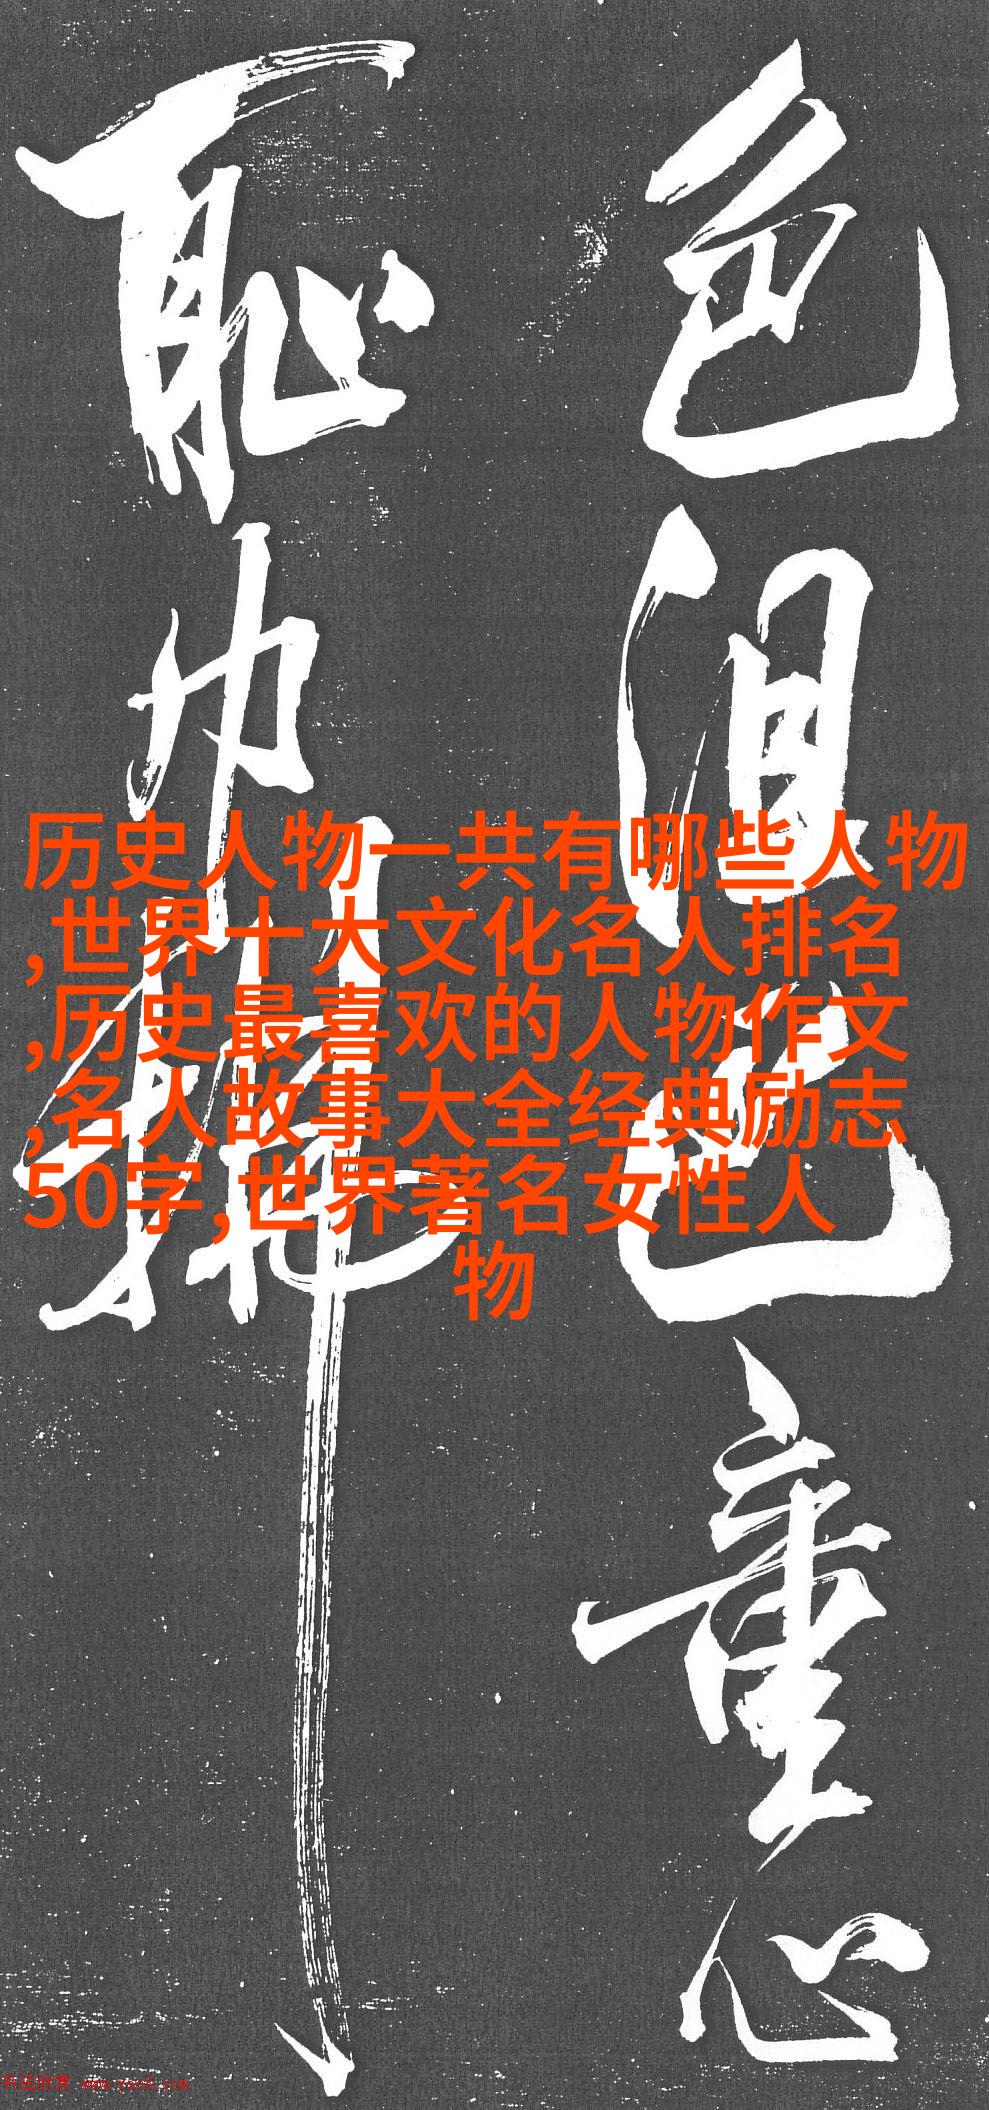 历史人物一共有哪些人物
,世界十大文化名人排名
,历史最喜欢的人物作文
,名人故事大全经典励志
50字,世界著名女性人
物
色沮色重心
耻力
书法欣赏 www.yac8.com